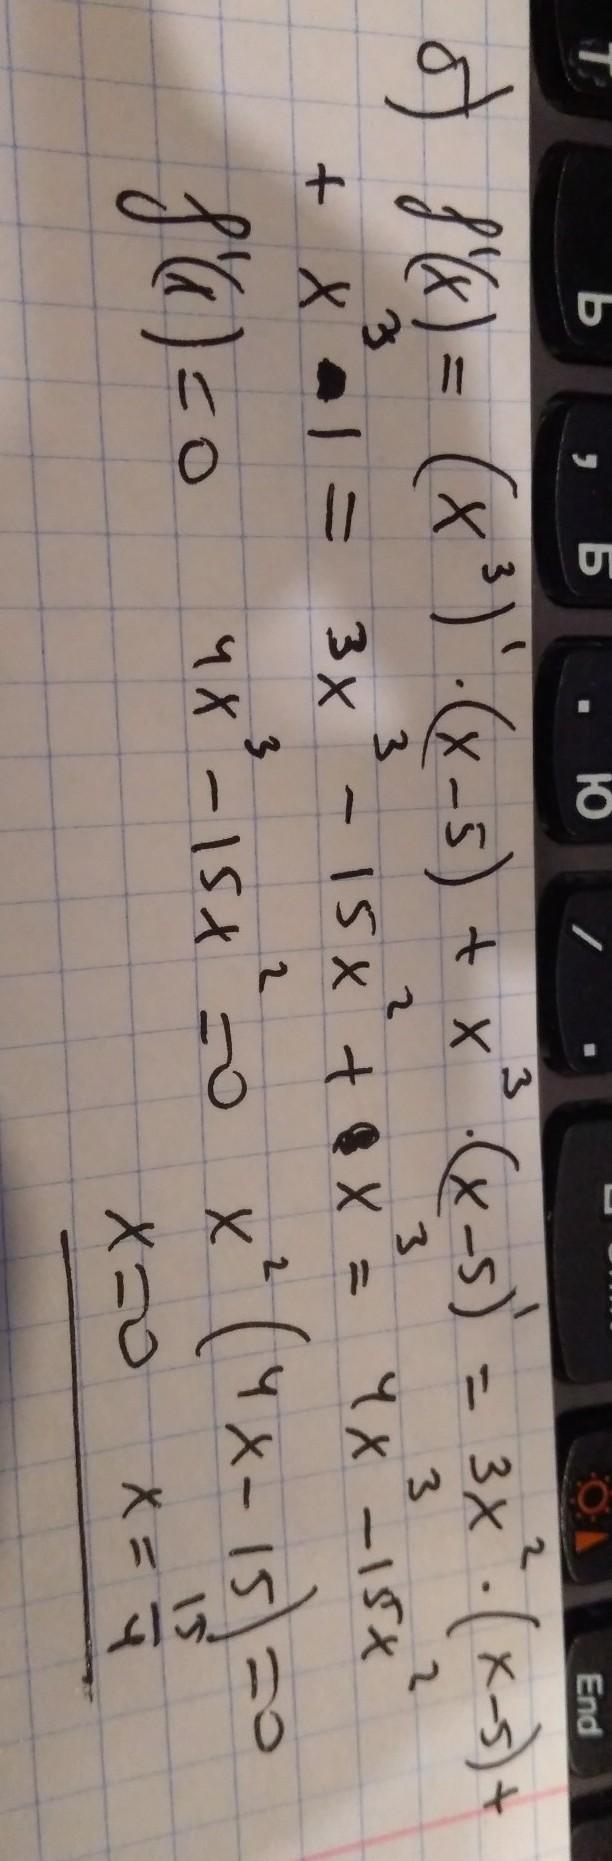 Ь , Б . Ю / . End
б) f'(x) = (x³)' · (x-5) + x³ · (x-5)' = 3x² · (x-5) +
+ x³ · 1 = 3x³ - 15x² + x³ = 4x³ - 15x²
f'(x) = 0 4x³ - 15x² = 0 x² (4x - 15) = 0
x = 0 x = 15/4